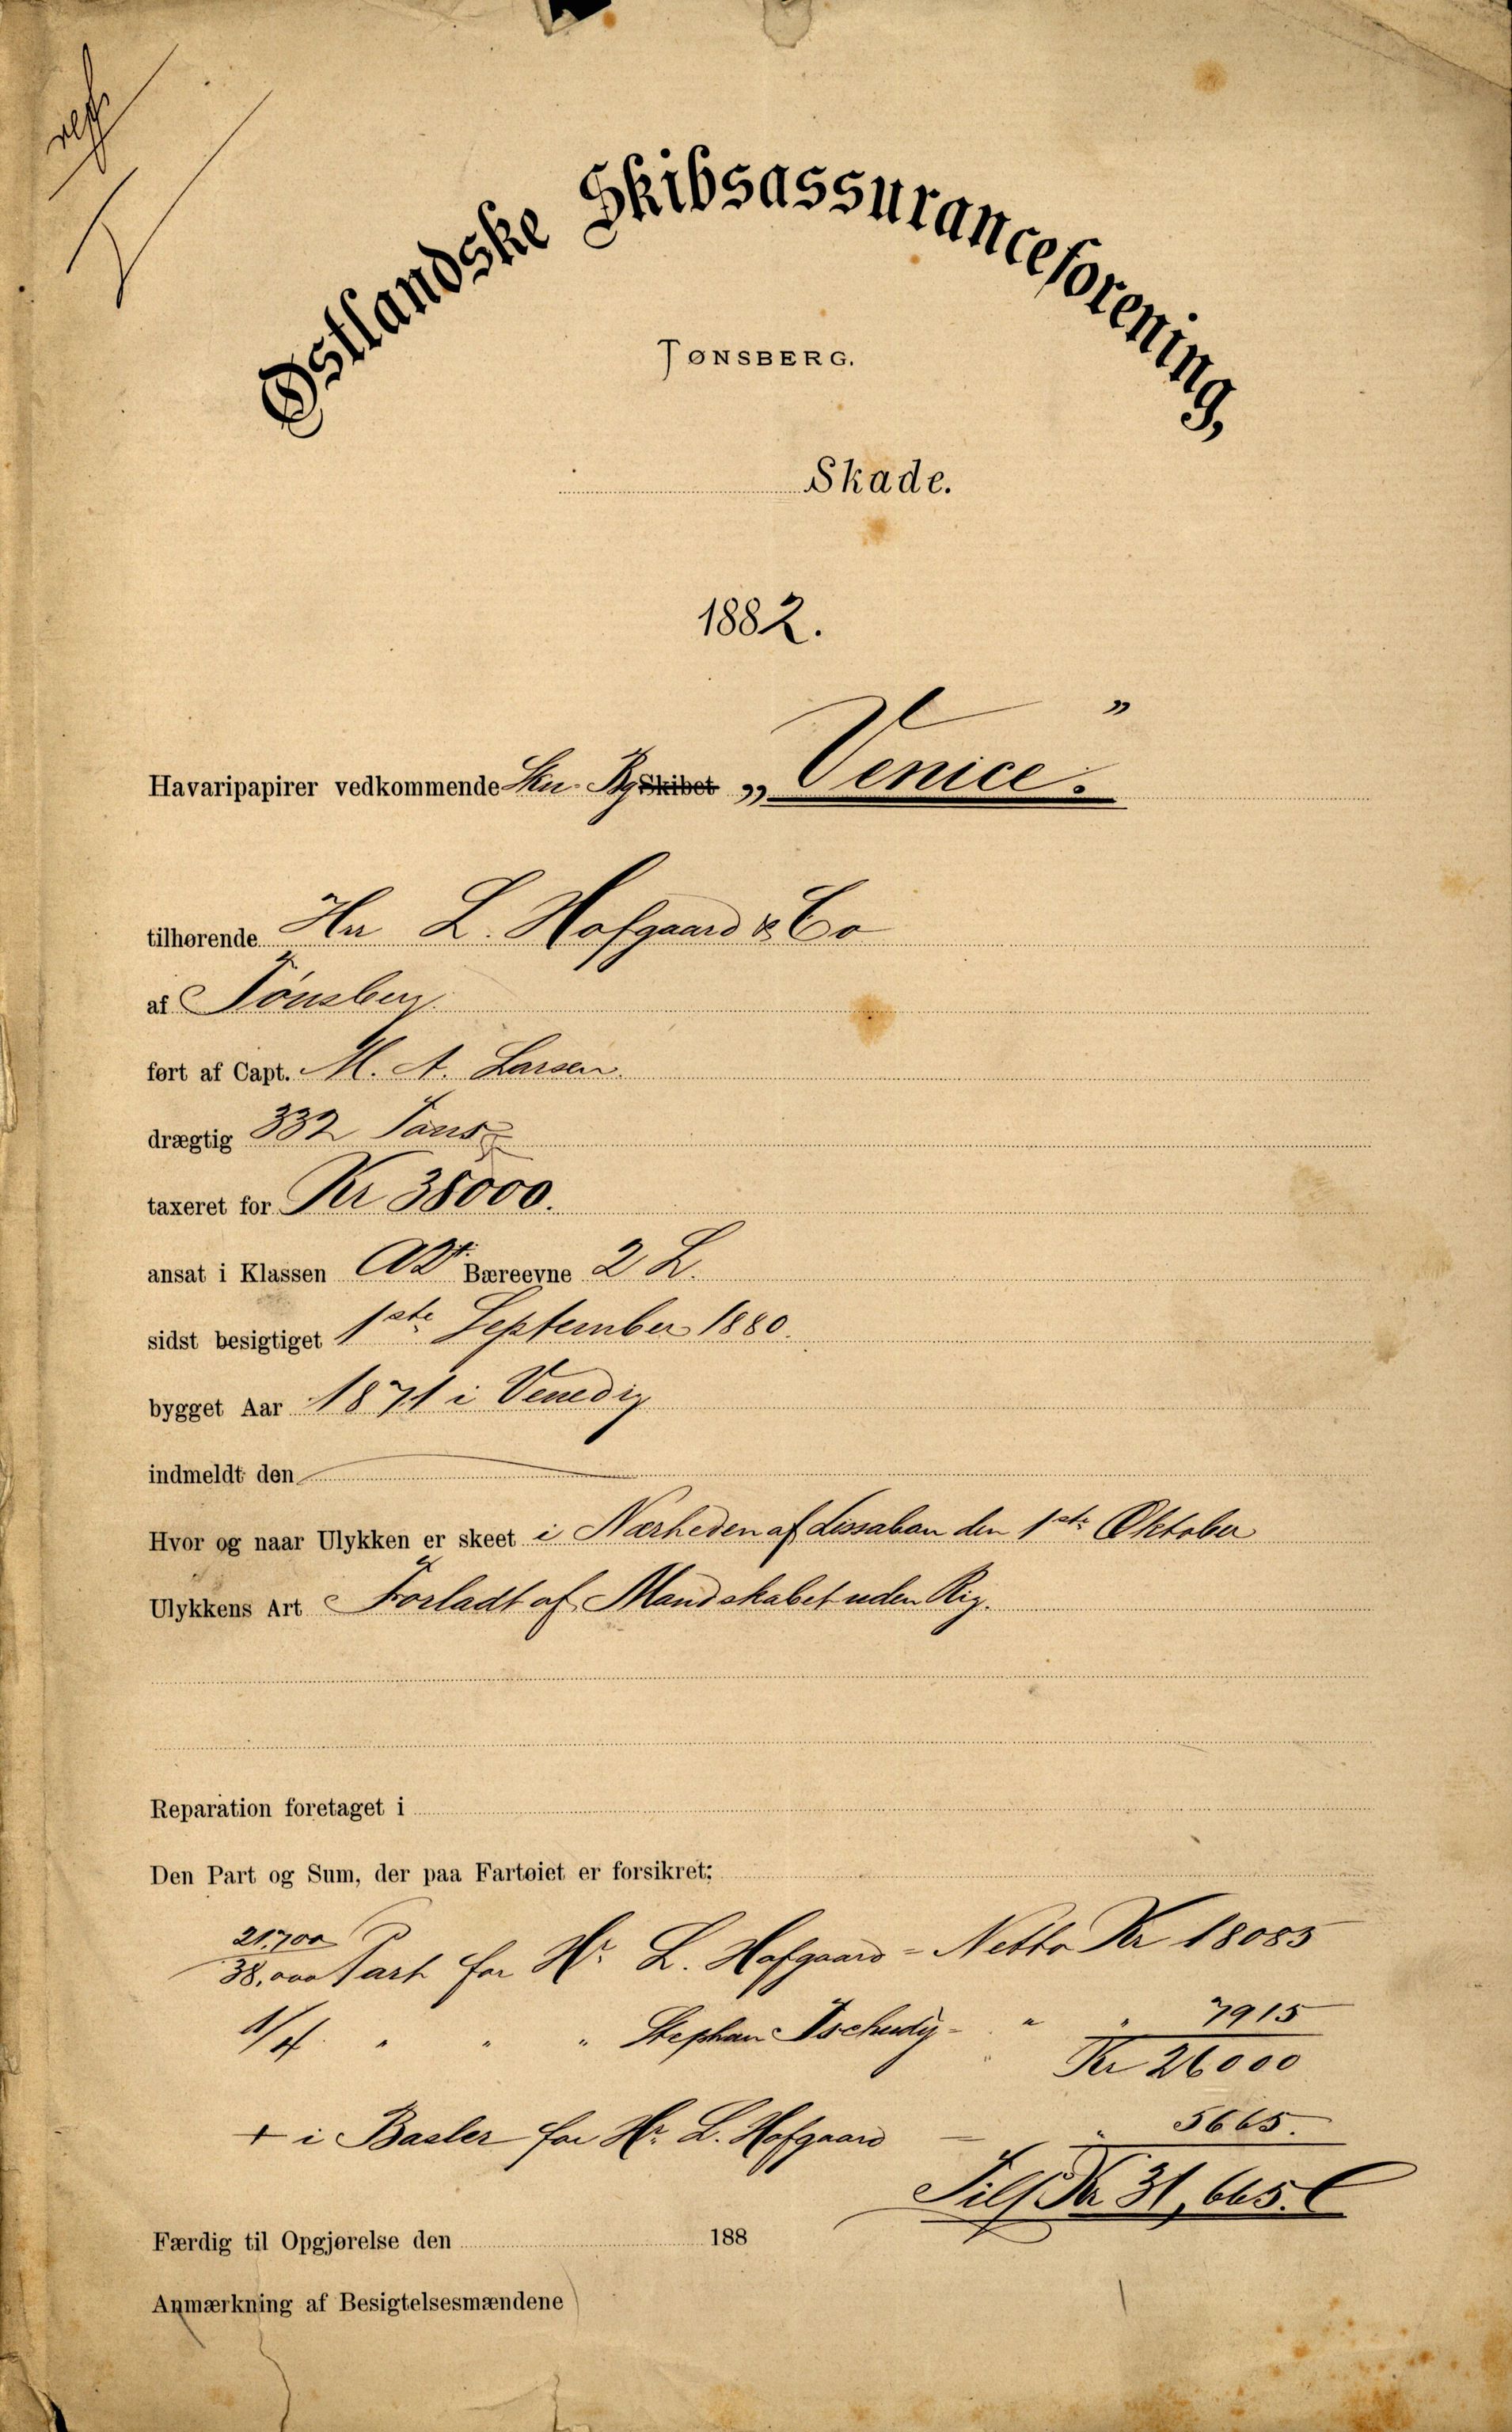 Østlandske Skibsassuranceforening,
TØNSBERG.
Skade.
1882.
Havaripapirer vedkommende Skn. Bg Skibet „Venice.”
tilhørende Hrr L. Hofgaard & Co
af Tönsberg.
ført af Capt. M. A. Larsen.
drægtig 332 Tons
taxeret for Kr 38000.
ansat i Klassen Bæreevne 2 L.
sidst besigtiget 1ste September 1880.
bygget Aar 1871 i Venedig
indmeldt den
Hvor og naar Ulykken er skeet i Nærheden af Lissabon den 1ste Oktober
Ulykkens Art Forladt af Mandskabet uden Rig.
Reparation foretaget i
Den Part og Sum, der paa Fartøiet er forsikret:
21,700/38,000 Part for Hr. L. Hofgaard = Netto Kr 18085
1/4 " " " Stephan Tschudy = " " 7915
Kr 26000
+ i Basler for Hr. L. Hofgaard — " 5665.
Tils. Kr 31,665.
Færdig til Opgjørelse den 188
Anmærkning af Besigtelsesmændene